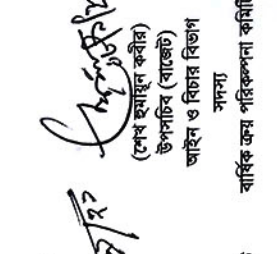 (শেখ হুমায়ূন কবীর)
উপসচিব (বাজেট)
আইন ও বিচার বিভাগ
সদস্য
বার্ষিক ক্রয় পরিকল্পনা কমিটি